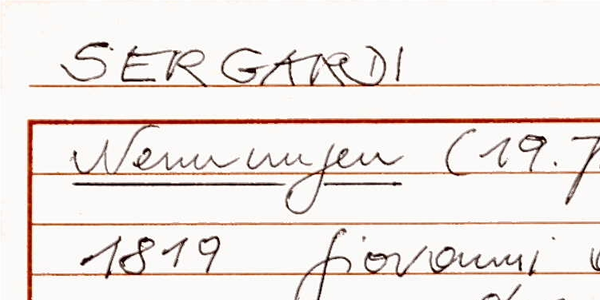 SERGARDI
Nenningen (19.7
1819 Giovanni